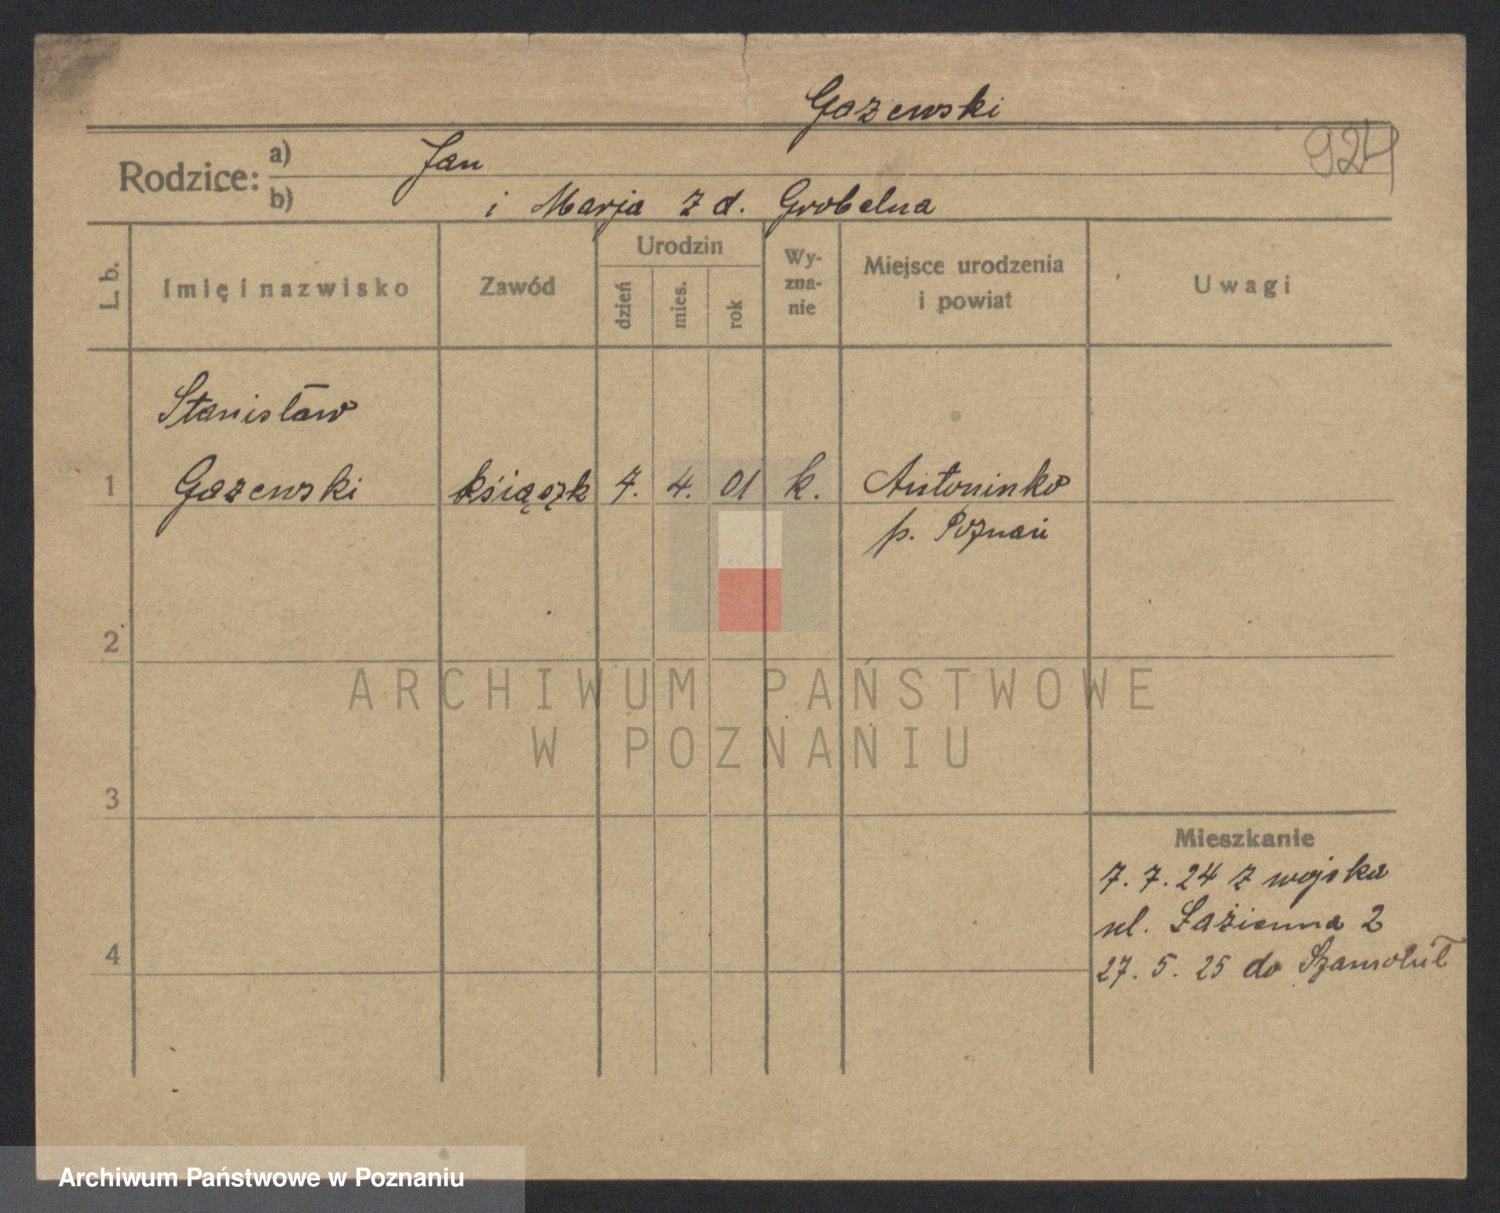 Gazewski
924
Rodzice: a) Jan
b) i Marja z d. Grobelna
L. b.
Imię i nazwisko
Zawód
Urodzin
dzień
mies.
rok
Wy-
zna-
nie
Miejsce urodzenia
i powiat
Uwagi
Stanisław
1 Gazewski książk 7. 4. 01 k. Antoninko
p. Poznań
2
ARCHIWUM PAŃSTWOWE
W POZNANIU
3
Mieszkanie
7. 7. 24 z wojska
ul. Łazienna 2
4
27. 5. 25 do Szamotuł
Archiwum Państwowe w Poznaniu